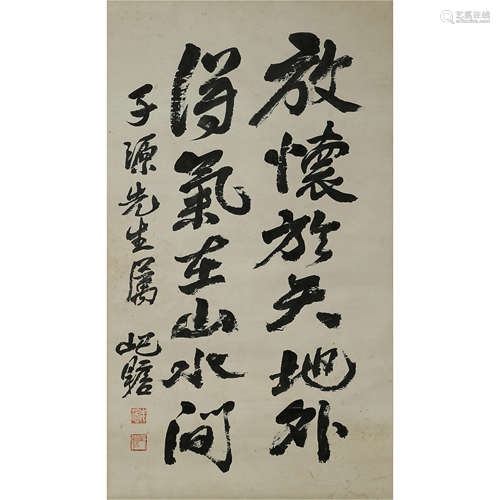 放懷於天地外
得氣在山水間
子源先生屬 屺瞻
艺虎在线